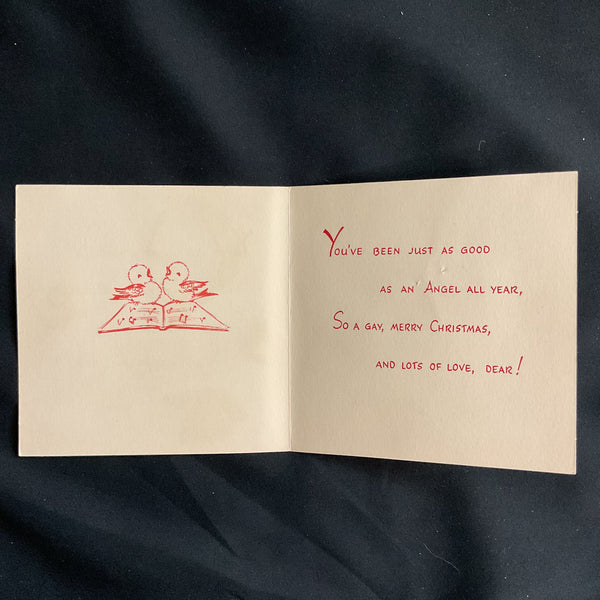 You've been just as good
as an Angel all year,
So a gay, merry Christmas,
and lots of love, dear!